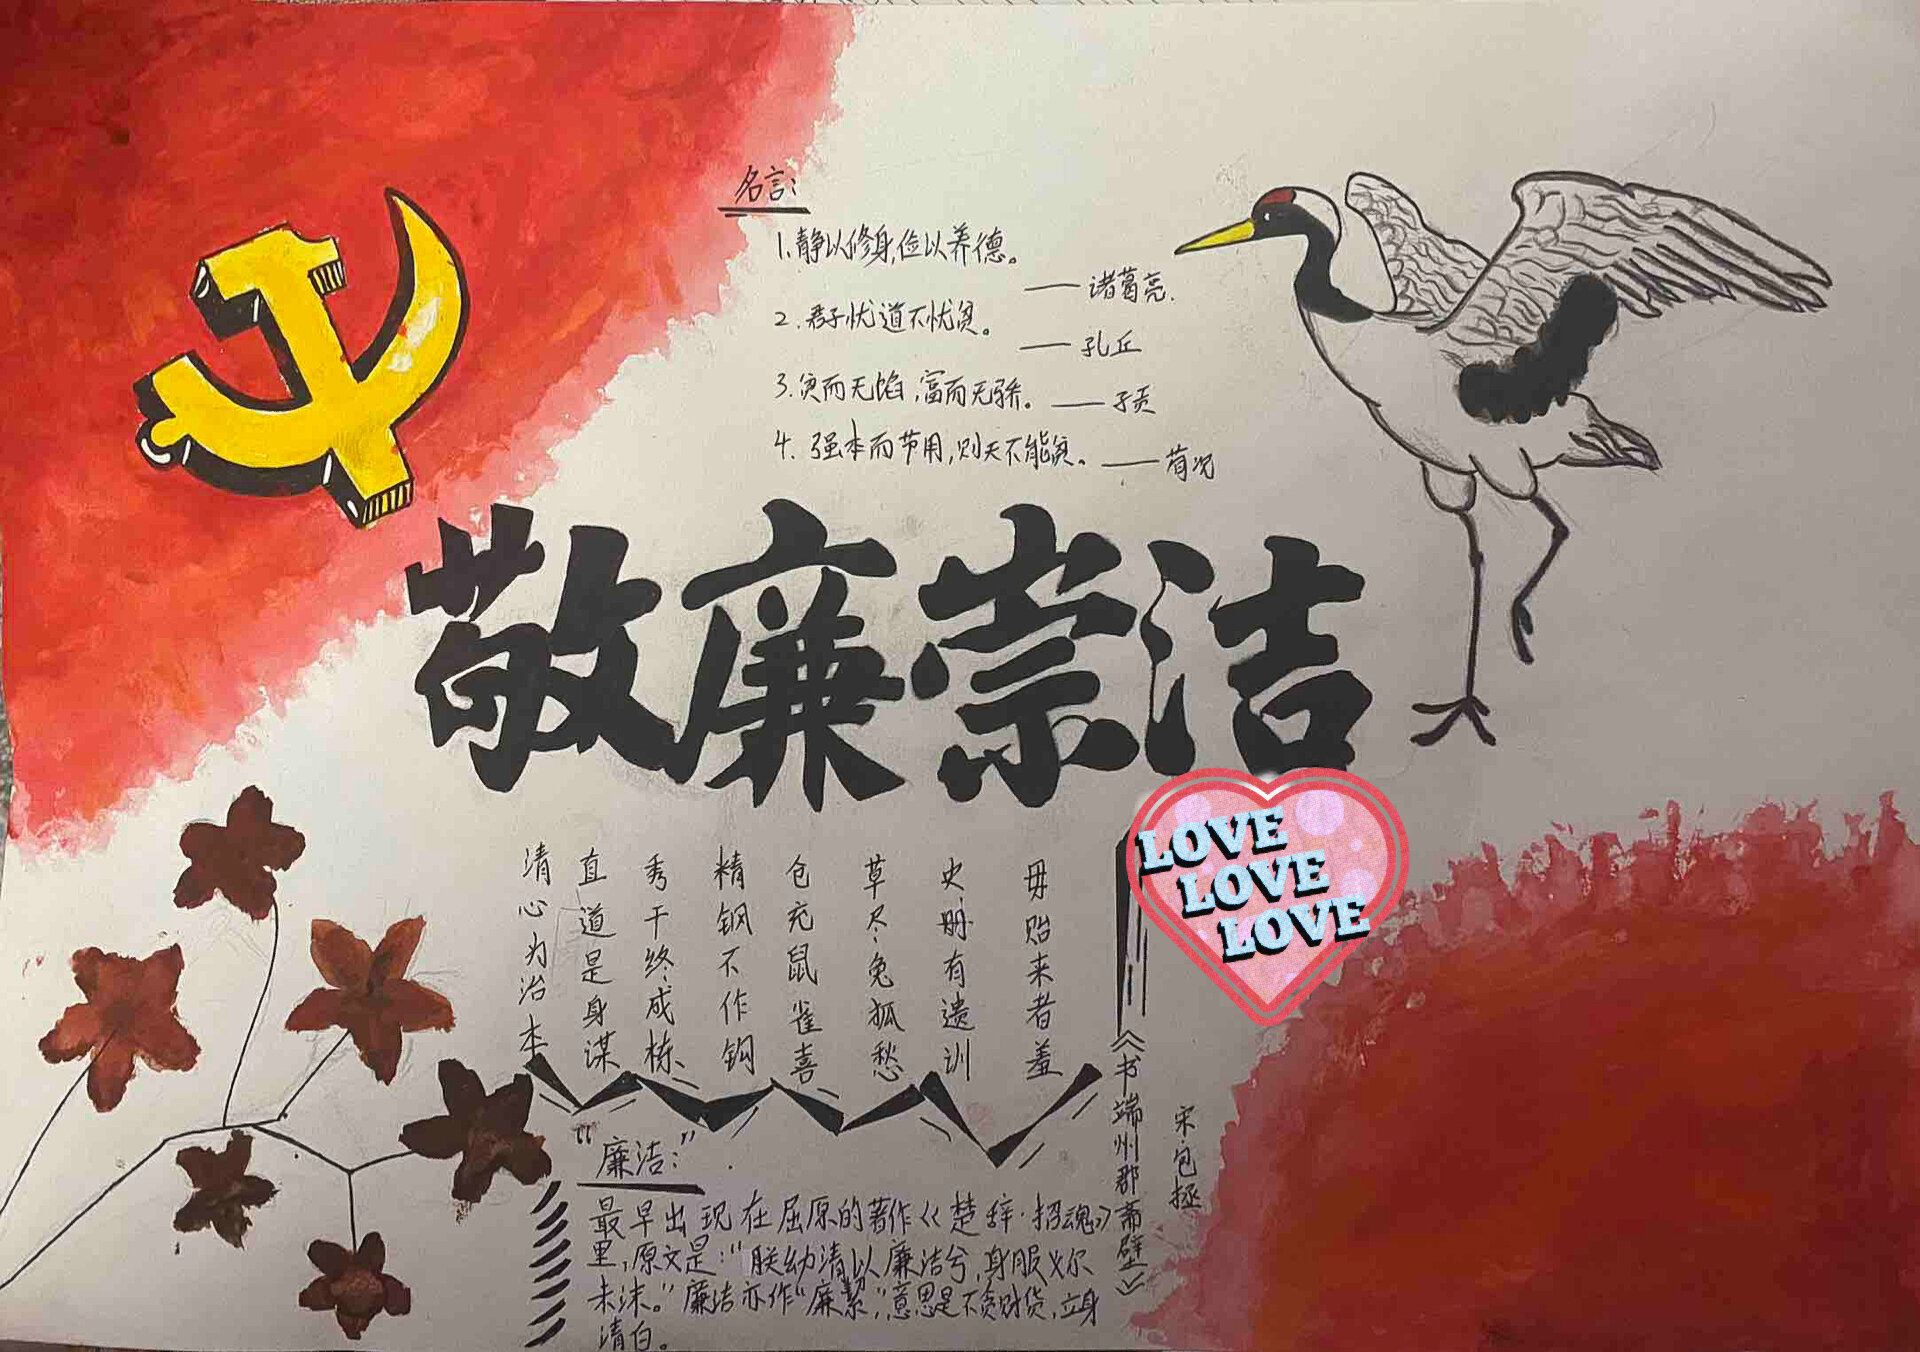 名言：
1.静以修身,俭以养德。
——诸葛亮.
2.君子忧道不忧贫。
——孔丘
3.贫而无馅,富而无骄。——子贡
4.强本而节用,则天不能贫。——荀况
敬廉崇洁
清心为治本
直道是身谋
秀干终成栋
精钢不作钩
仓充鼠雀喜
草尽兔狐愁
史册有遗训
毋贻来者羞
《书端州郡斋壁》
宋·包拯
LOVE
LOVE
LOVE
“廉洁：”
最早出现在屈原的著作《楚辞·招魂》
里,原文是：“朕幼清以廉洁兮,身服义尔
未沫。”廉洁亦作“廉絜”,意思是不贪财货,立身
清白。